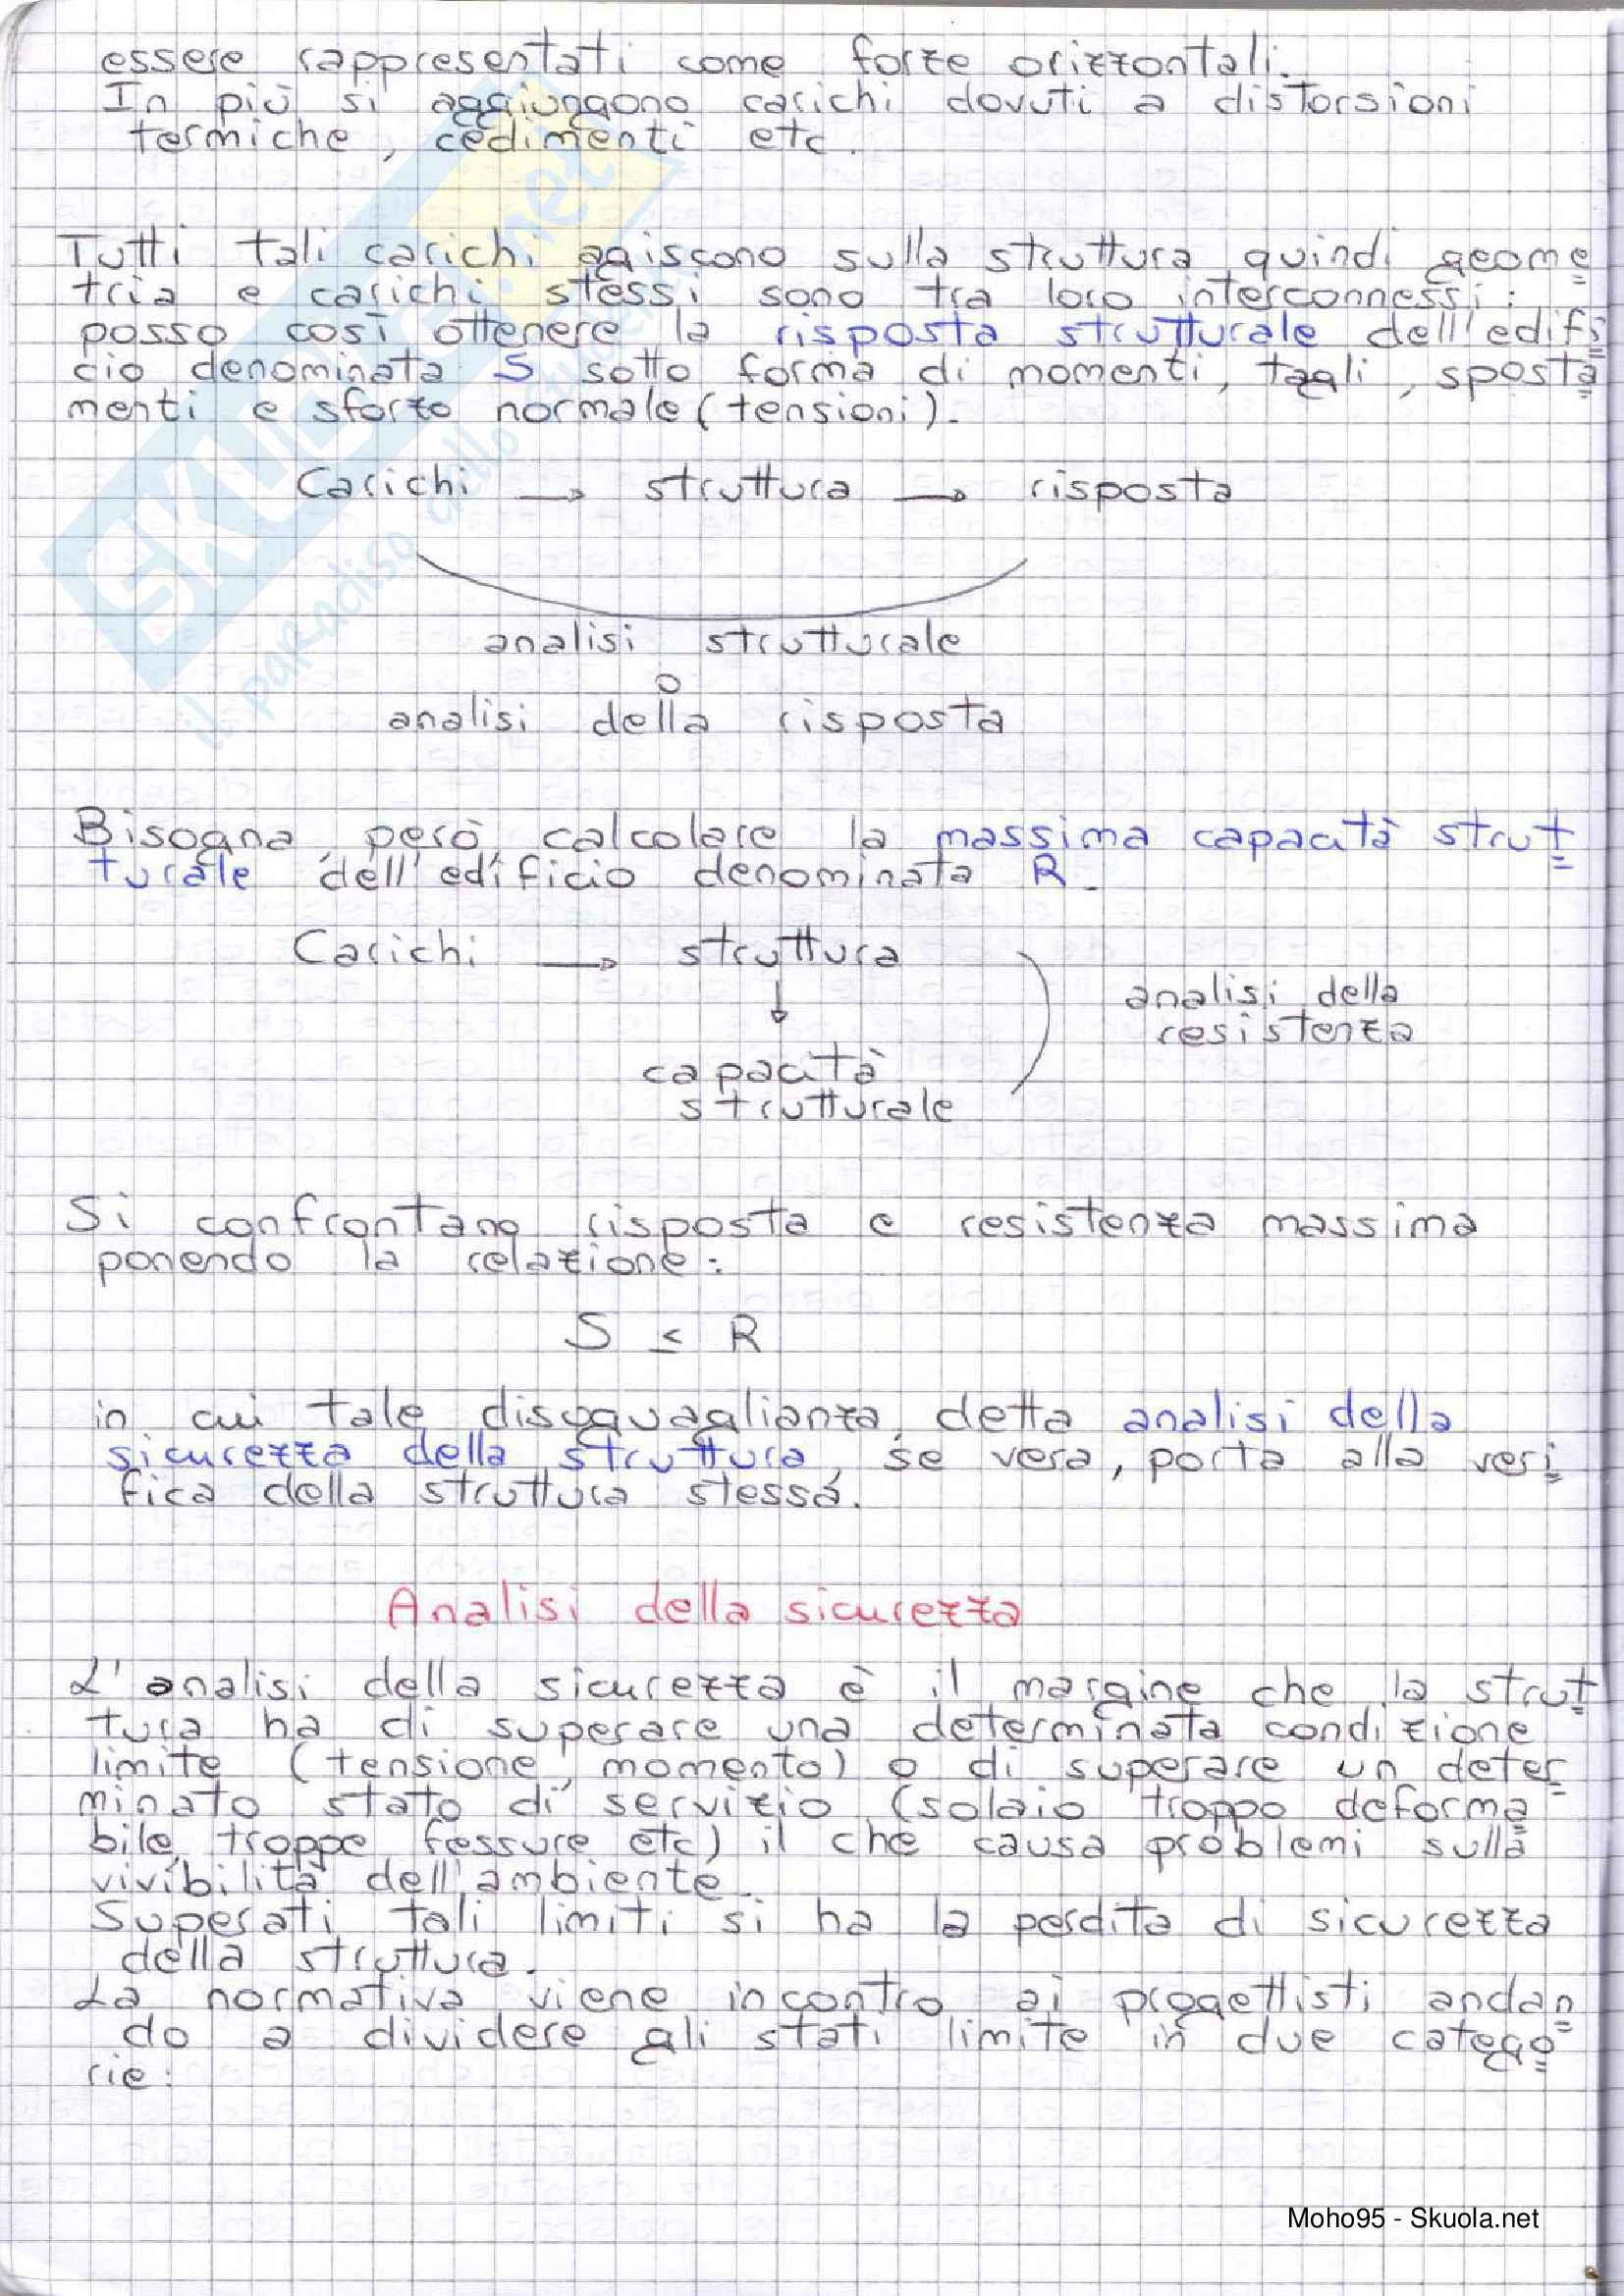 essere rappresentati come forze orizzontali.
In più si aggiungono carichi dovuti a distorsioni
termiche, cedimenti etc.
Tutti tali carichi agiscono sulla struttura quindi geome
tria e carichi stessi sono tra loro interconnessi:
posso così ottenere la risposta strutturale dell'edifi
cio denominata S sotto forma di momenti, tagli, sposta
menti e sforzo normale (tensioni).
Carichi → struttura → risposta
analisi strutturale
o
analisi della risposta
Bisogna, però, calcolare la massima capacità strut
turale dell'edificio denominata R.
Carichi → struttura
↓
analisi della
resistenza
capacità
strutturale
Si confrontano risposta e resistenza massima
ponendo la relazione:
S ≤ R
in cui tale disguaglianza, detta analisi della
sicurezza della struttura, se vera, porta alla veri
fica della struttura stessa.
Analisi della sicurezza
L'analisi della sicurezza è il margine che la strut
tura ha di superare una determinata condizione
limite (tensione, momento) o di superare un deter
minato stato di servizio (solaio troppo deforma
bile, troppe fessure etc) il che causa problemi sulla
vivibilità dell'ambiente.
Superati tali limiti si ha la perdita di sicurezza
della struttura.
La normativa viene incontro ai progettisti andan
do a dividere gli stati limite in due catego
rie:
SKUOLA.net
il paradiso dello studente
Moho95 - Skuola.net